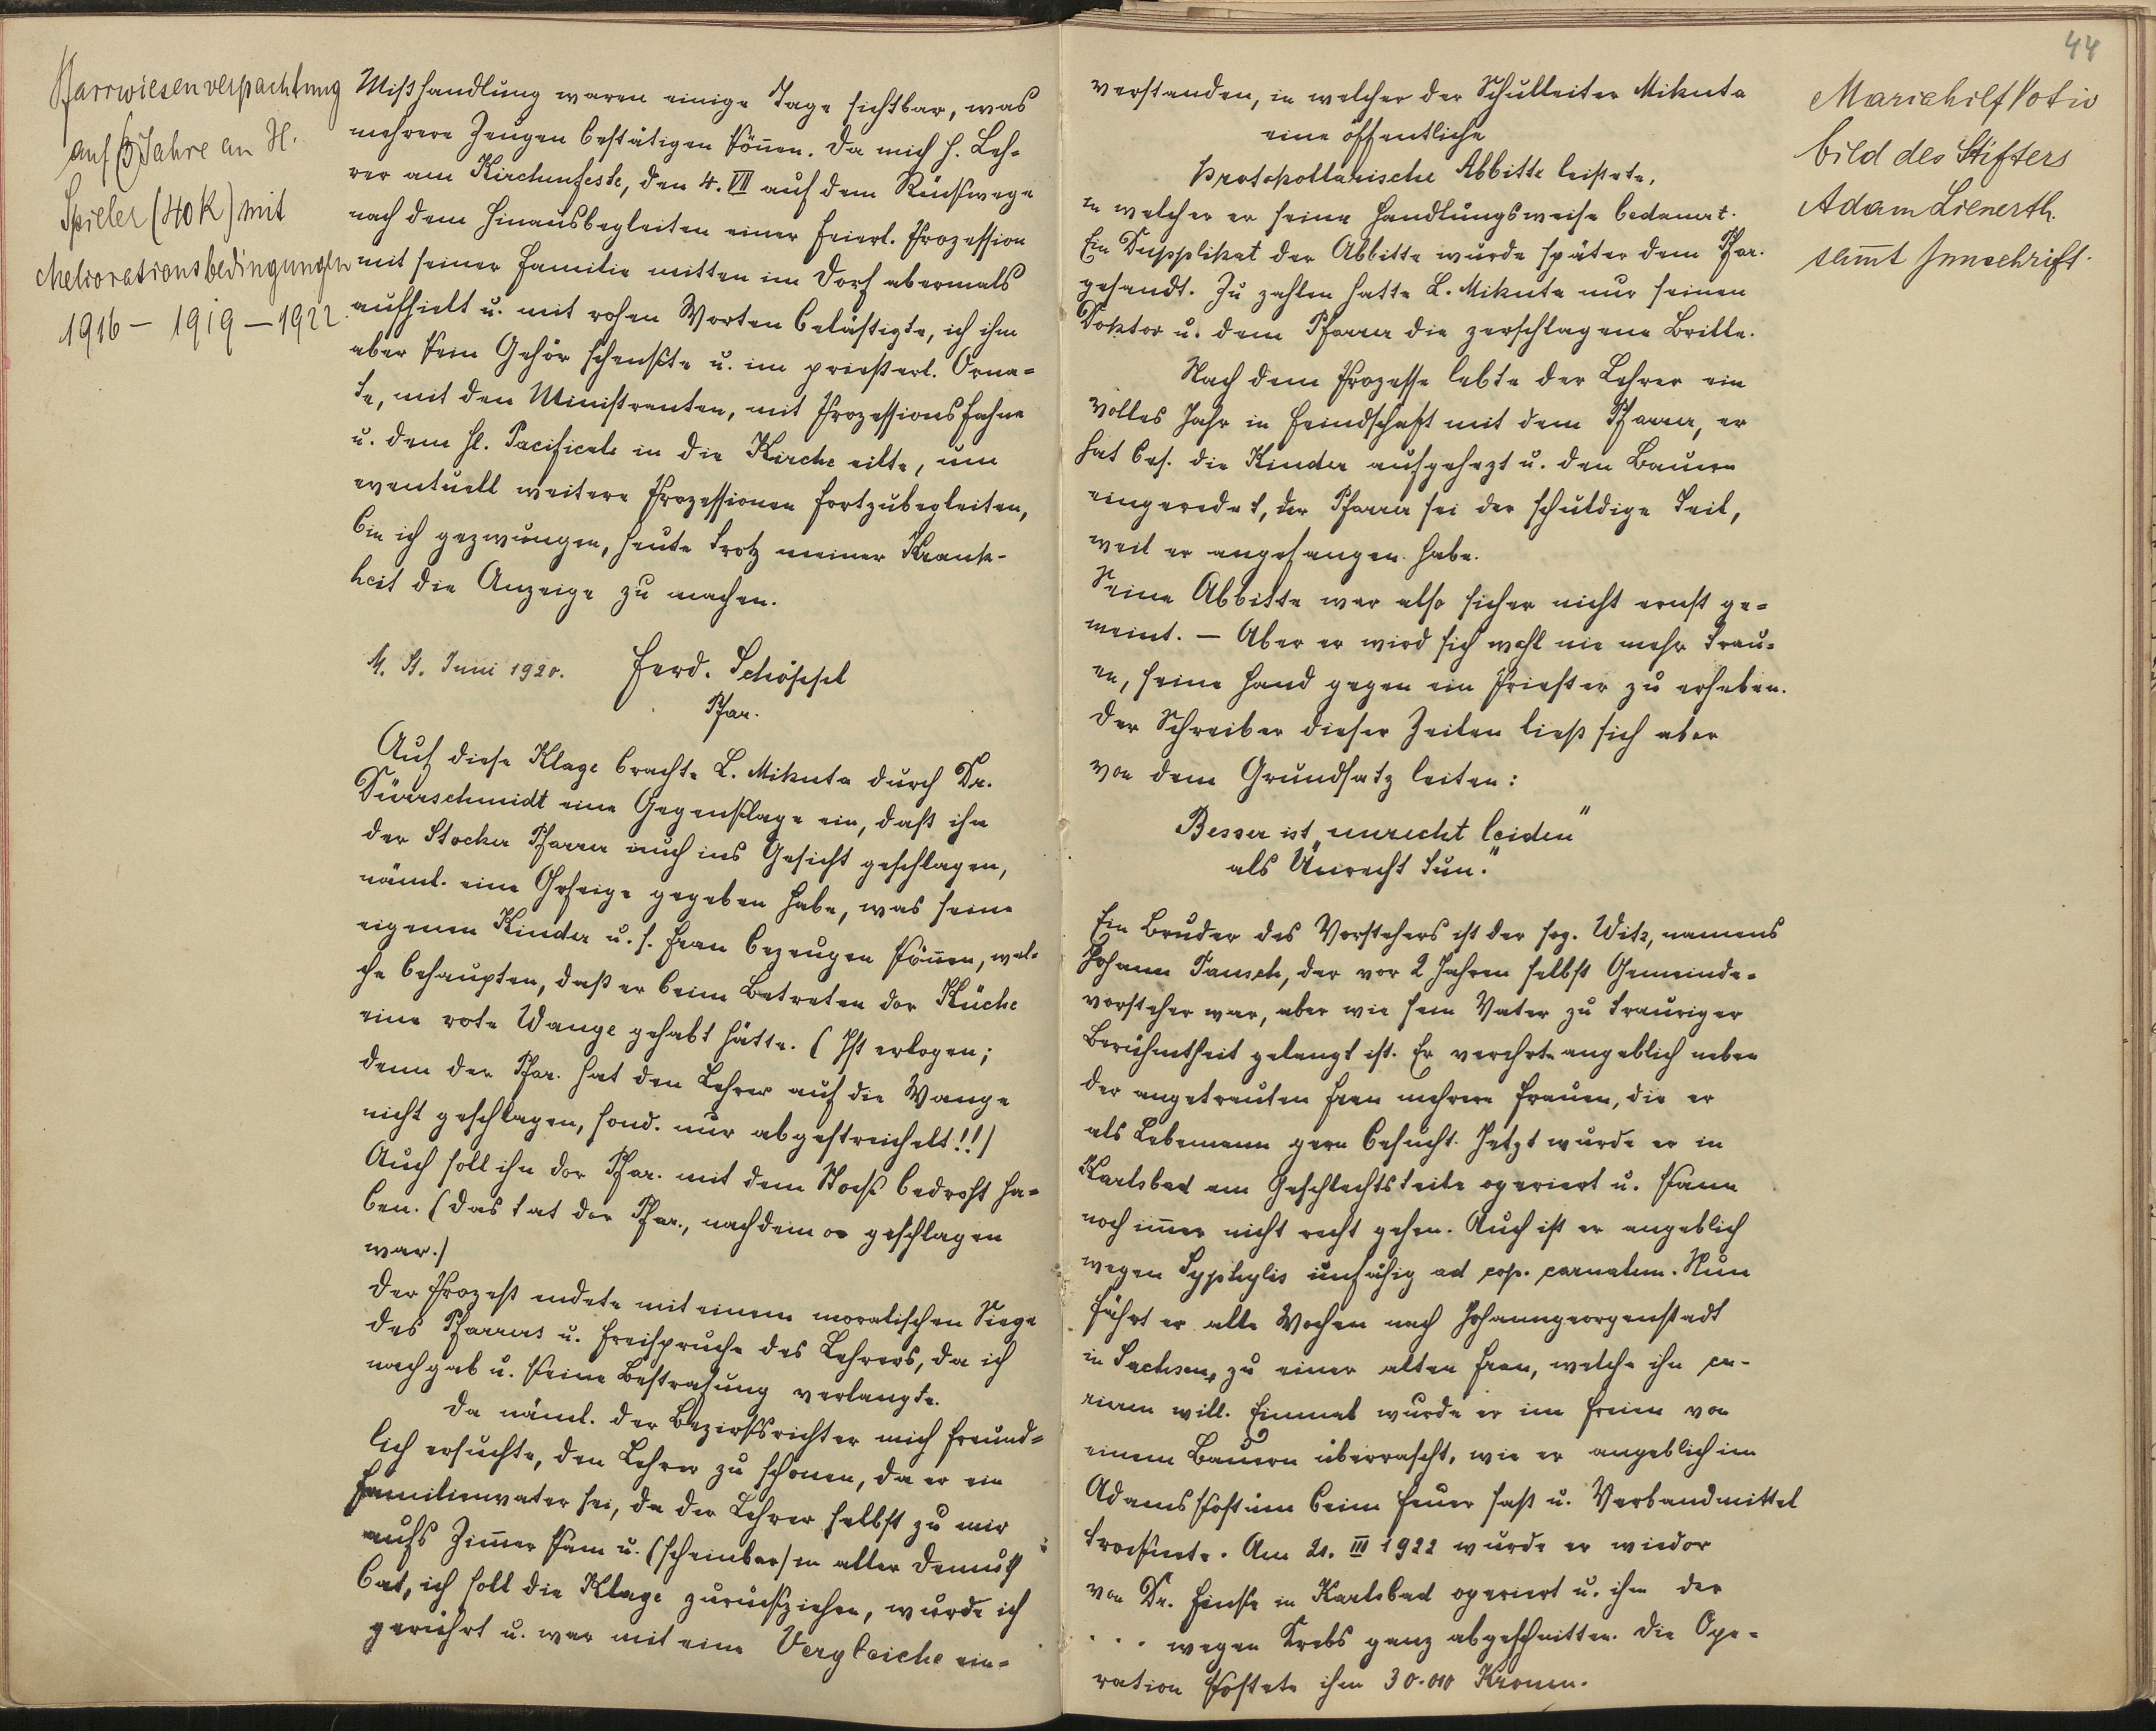 Pfarrwiesenverpachtung
auf 3 Jahre an H.
Spieler (40 K) mit
Meliorationsbedingungen
1916 – 1919 – 1922.
Mißhandlung waren einige Tage sichtbar, was
mehrere Zeugen bestätigen können. Da mich H. Leh-
rer am Kirchenfeste, den 4. VII auf dem Rückwege
nach dem Hinausbegleiten einer feierl. Prozession
mit seiner Familie mitten im Dorf abermals
aufhielt u. mit rohen Worten belästigte, ich ihm
aber kein Gehör schenkte u. im priesterl. Orna-
te, mit den Ministranten, mit Prozessionsfahne
u. dem hl. Pacificale in die Kirche eilte, um
eventuell weitere Prozessionen fortzubegleiten,
bin ich gezwungen, heute trotz meiner Krank-
heit die Anzeige zu machen.
M. St. Juni 1920. Ferd. Schöppl
Pfar.
Auf diese Klage brachte L. Mikuta durch Dr.
Dürrschmidt eine Gegenklage ein, daß ihn
der Stocker Pfarrer auch ins Gesicht geschlagen,
näml. eine Ohrfeige gegeben habe, was seine
eigenen Kinder u. s. Frau bezeugen können, wel-
che behaupten, daß er beim Betreten der Küche
eine rote Wange gehabt hätte. (Ist erlogen;
denn der Pfar. hat den Lehrer auf die Wange
nicht geschlagen, sond. nur abgestreichelt!!)
Auch soll ihn der Pfar. mit dem Stock bedroht ha-
ben. (Das tat der Pfar., nachdem er geschlagen
war.)
Der Prozeß endete mit einem moralischen Siege
des Pfarrers u. Freispruche des Lehrers, da ich
nachgab u. keine Bestrafung verlangte.
Da näml. der Bezirksrichter mich freund-
lich ersuchte, den Lehrer zu schonen, da er ein
Familienvater sei, da der Lehrer selbst zu mir
aufs Zimmer kam u. (scheinbar) in aller Demuth
bat, ich soll die Klage zurückziehen, wurde ich
gerührt u. war mit eine Vergleiche ein-
44
verstanden, in welcher der Schulleiter Mikuta
eine öffentliche
protokollarische Abbitte leistete,
in welcher er seine Handlungsweise bedauert.
Ein Dupplikat der Abbitte wurde später dem Pfar.
gesandt. Zu zahlen hatte L. Mikuta nur seinen
Doktor u. dem Pfarrer die zerschlagene Brille.
Nach dem Prozesse lebte der Lehrer ein
volles Jahr in Feindschaft mit dem Pfarrer, er
hat bes. die Kinder aufgehezt u. den Bauern
eingeredet, der Pfarrer sei der schuldige Teil,
weil er angefangen habe.
Seine Abbitte war also sicher nicht ernst ge-
meint. – Aber er wird sich wohl nie mehr trau-
en, seine Hand gegen ein Priester zu erheben.
Der Schreiber dieser Zeilen ließ sich aber
von dem Grundsatz leiten:
Besser ist „unrecht leiden"
als „Unrecht tun."
Ein Bruder des Vorstehers ist der sog. Witz, namens
Johann Pausch, der vor 2 Jahren selbst Gemeinde-
vorsteher war, aber wie sein Vater zu trauriger
Berühmtheit gelangt ist. Er verehrte angeblich neben
der angetrauten Frau mehrere Frauen, die er
als Lebemann gern besucht. Jetzt wurde er in
Karlsbad am Geschlechtsteile operiert u. kann
noch immer nicht recht gehen. Auch ist er angeblich
wegen Syphylis unfähig ad cop. carnalem. Nun
fährt er alle Wochen nach Johanngeorgenstadt
in Sachsen, zu einer alten Frau, welche ihn cu-
rieren will. Einmal wurde er im Freien von
einem Bauern überrascht, wie er angeblich im
Adamskostüm beim Feuer saß u. Verbandmittel
trocknete. Am 21. III 1922 wurde er wieder
von Dr. Finke in Karlsbad operiert u. ihm der
. . . wegen Krebs ganz abgeschnitten. Die Ope-
ration kostete ihm 30.000 Kronen.
Mariahilf Votiv
bild des Stifters
Adam Lienerth.
samt Innschrift.